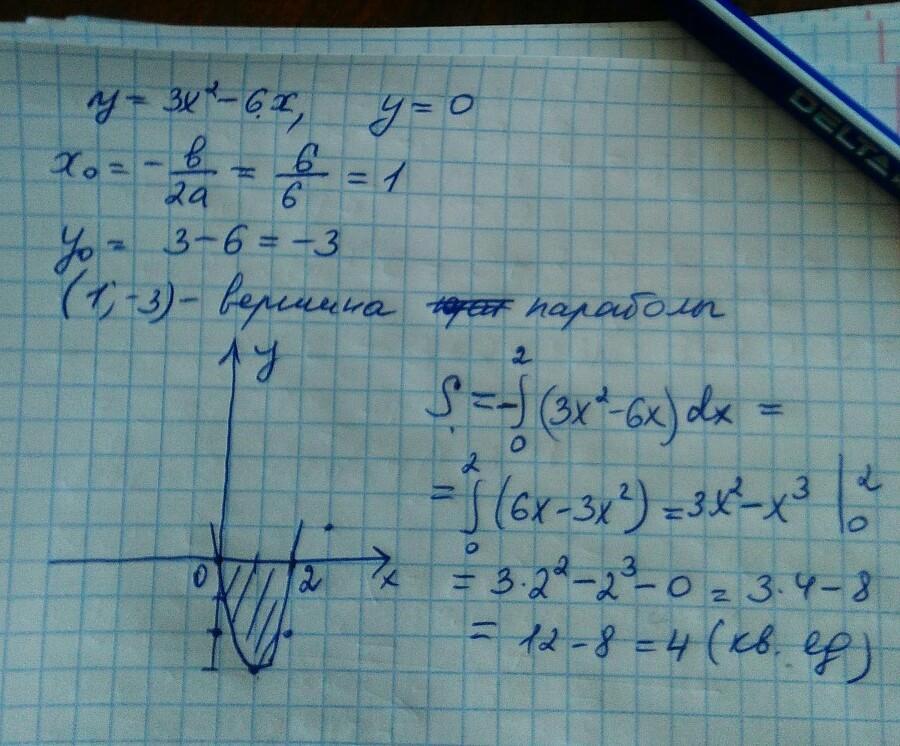 y = 3x² - 6x, y = 0
x₀ = - в/2a = 6/6 = 1
y₀ = 3 - 6 = -3
(1; -3) - вершина параболы
y
S = -∫₀² (3x² - 6x) dx =
= ∫₀² (6x - 3x²) = 3x² - x³ |₀²
0 2 x
= 3·2² - 2³ - 0 = 3·4 - 8
= 12 - 8 = 4 (кв. ед)
DELTA